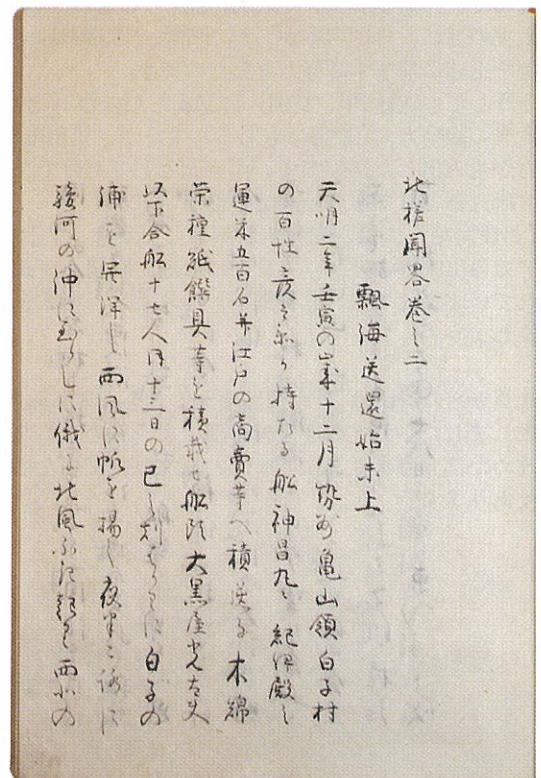 北槎聞略巻之二
飄海送還始末上
天明二年壬寅の歳十二月勢州亀山領白子村
の百姓彦兵衛が持たる船神昌丸に紀伊殿の
運米五百石并江戸の商賣等へ積送る木綿
薬種紙饌具等を積載せ船頭大黒屋光太夫
以下合船十七人同十三日の巳の刻ばかりに白子の
浦を開洋し西風に帆を揚て夜半に
駿河の沖に至りしに俄に北風ふき起り西北の